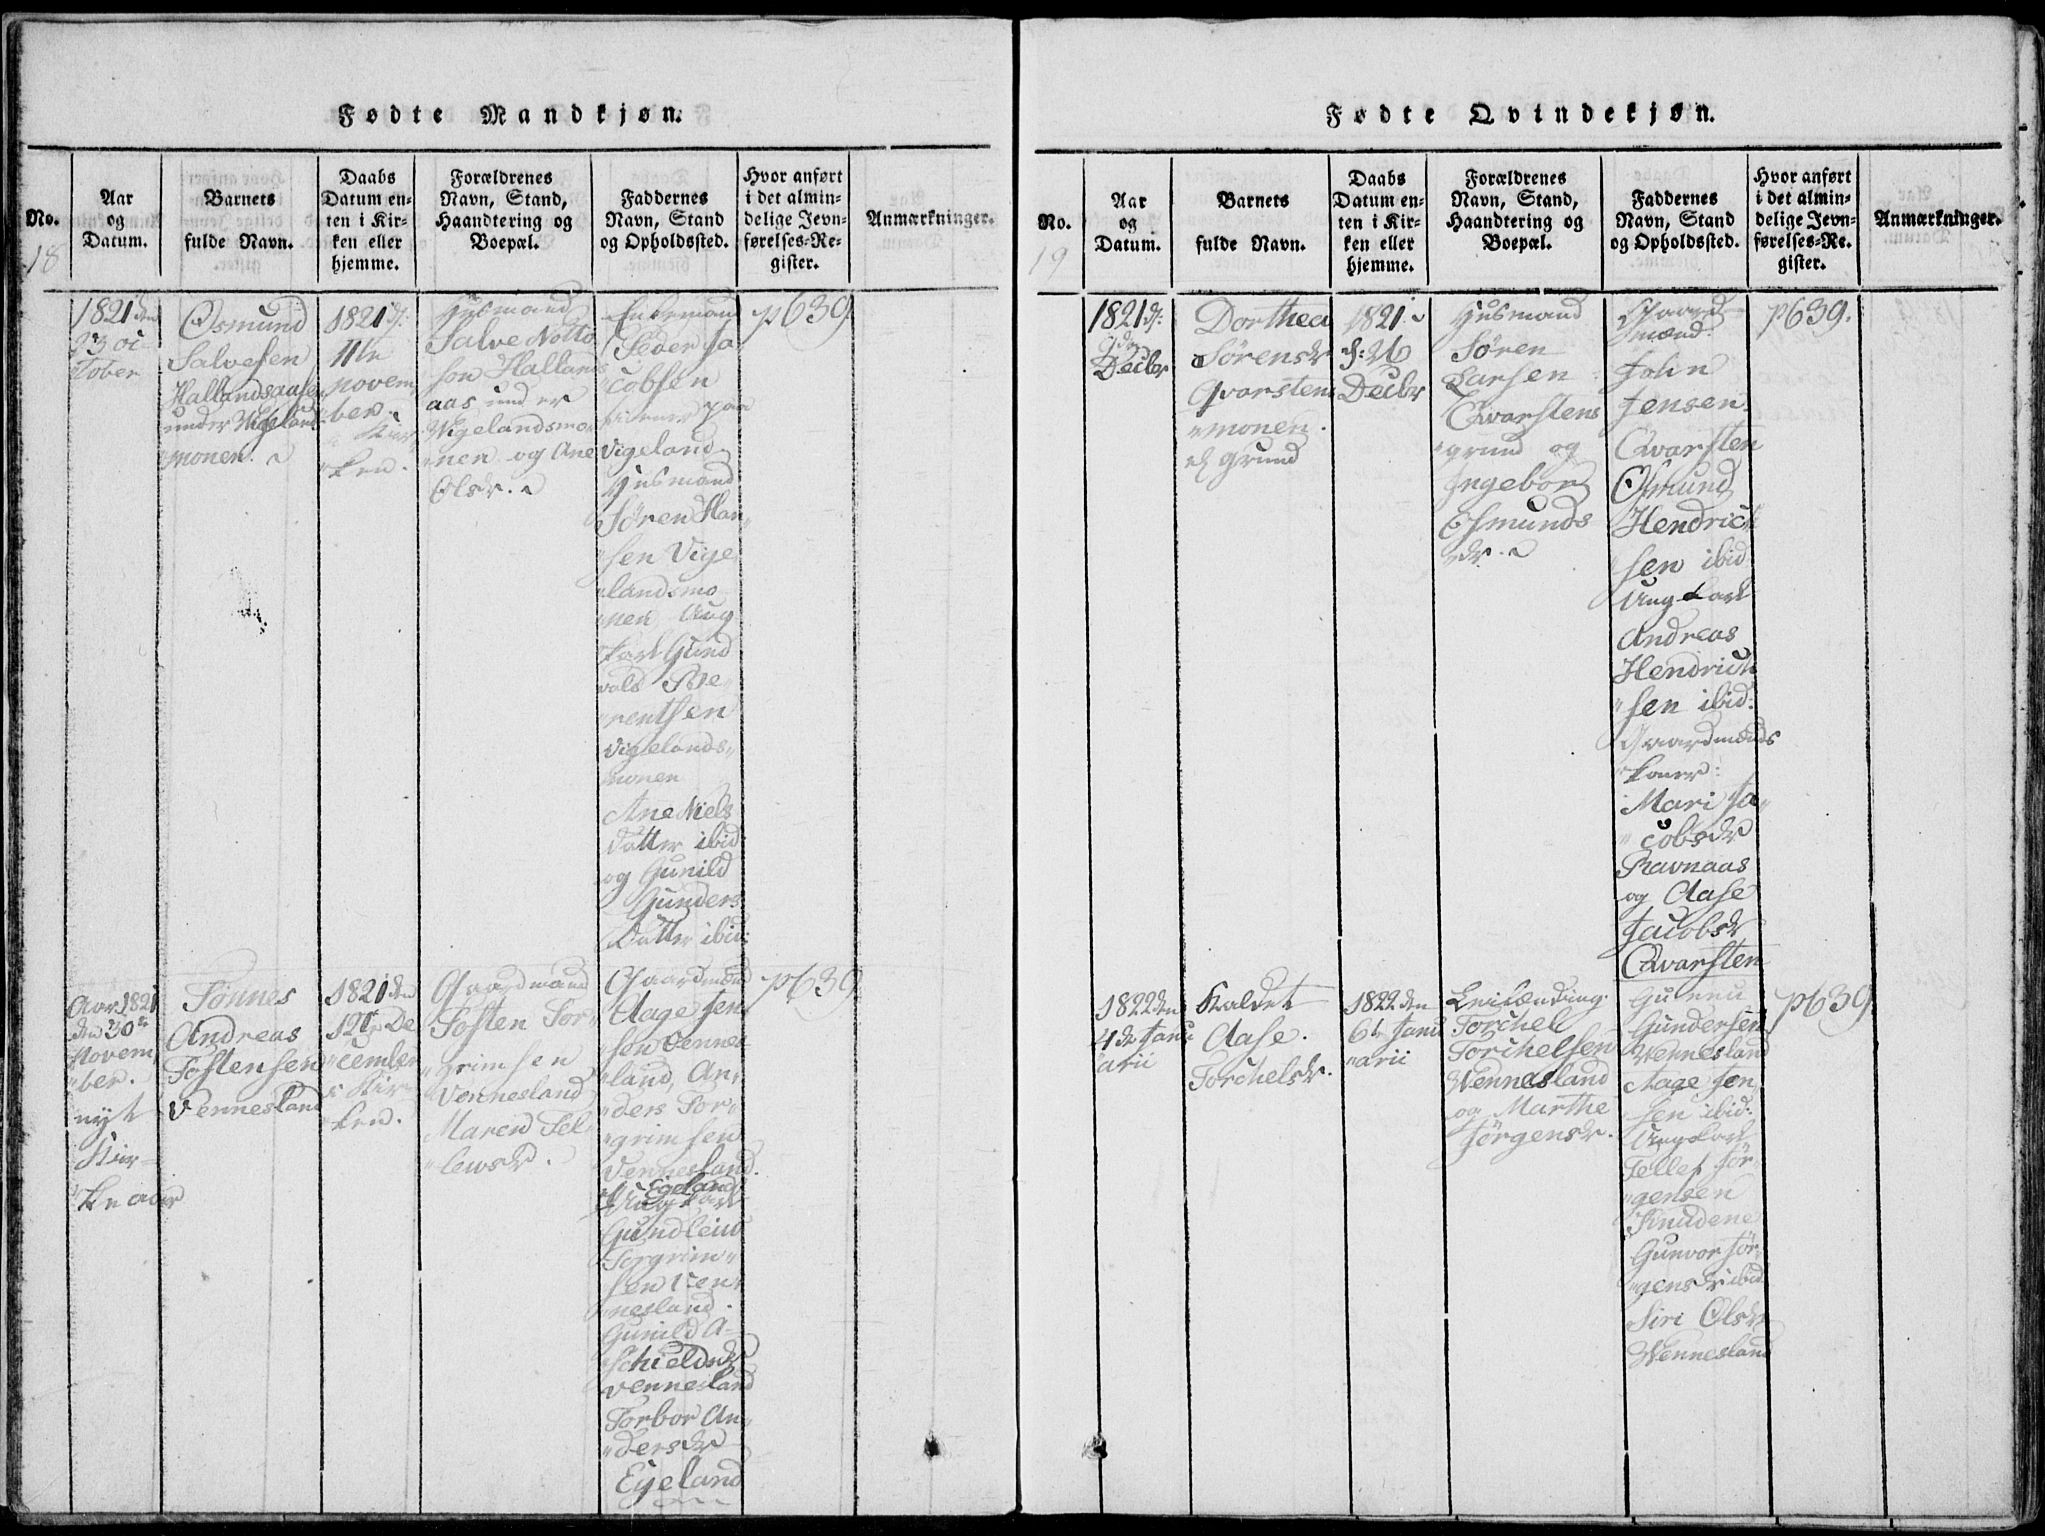 Fødte Mandkjøn.
No.
Aar
og
Datum.
Barnets
fulde Navn.
Daabs
Datum en-
ten i Kir-
ken eller
hjemme.
Forældrenes
Navn, Stand,
Haandtering og
Boepæl.
Faddernes
Navn, Stand
og Opholdssted.
Hvor anført
i det almin-
delige Jevn-
førelses-Re-
gister.
Anmærkninger.
18
1821 den
23 oc-
tober
Osmund
Salvesen
Hallandsaasen
under Vigelands
monen.
1821 d.
11te
novem
ber.
i Kir
ken.
Husmand
Salve Notto
son Hallands
aas under
Wigelandsmo
nen og Ane
Olsdr.
Peder Ja
cobsen
paa
Vigeland
Husmand
Søren Han
sen Vige
landsmo
nen Ung
karl Gund
vald Be
rentsen
Vigelands
monen
Ane Niels
datter ibid
og Gunild
Gunders
Datter ibid:
p639
Aar 1821
den 30te
Novem
ber.
nyt
Kir-
ke aar
Tønnes
Andreas
Tostensen
Vennesland
1821 den
De
cember
i Kir-
ken.
Gaardmand
Tosten Tor-
grimsen
Vennesland
Maren Tel-
lewsdr.
Gaardmænd
Aage Jen
sen Vennes
land, An-
ders Tor-
grimsen
Vennesland.
Egeland
Ungkarl
Gundleiu
Torgrim-
sen Ven
nesland.
Gunild A-
schieldsdr
Vennesland
Torbor An-
dersdr
Egeland
p639
Fødte Qvindekjøn.
No.
Aar
og
Datum.
Barnets
fulde Navn.
Daabs
Datum en-
ten i Kir-
ken eller
hjemme.
Forældrenes
Navn, Stand,
Haandtering og
Boepæl.
Faddernes
Navn, Stand
og Opholdssted.
Hvor anført
i det almin-
delige Jevn-
førelses-Re-
gister.
Anmærkninger.
19
1821 d.
Decbr
Dorthea
Sørensdr
Qvarstens
monen.
grund
1821
d: 26
Decbr
Husmand
Søren
Larsen
Qvarstens
grund og
Ingebor
Osmunds
dr.
Gaard
mænd
John
Jensen
Qvarsten
Osmund
Hendrich
sen ibid
Ungkarl
Andreas
Hendrich
sen ibid:
Gaardmænds
koner:
Mari Ja-
cobsdr
Ravnaas
og Aase
Jacobsdr
Qvarsten
p639.
1822 den
4de Janu
arii
Kaldet
Aase.
Torchelsdr.
1822 den
6te Janu
arii
Torchel
Torchelsen
Wennesland
og Marthe
Jørgensdr.
Gunnu
Gundersen
Wennesland
Aage Jen
sen ibid:
Ungkarl
Tellef Jør
gensen
Knudene
Gunvor Jør
gensdr ibid
Siri Olsdr
Wennesland
p639